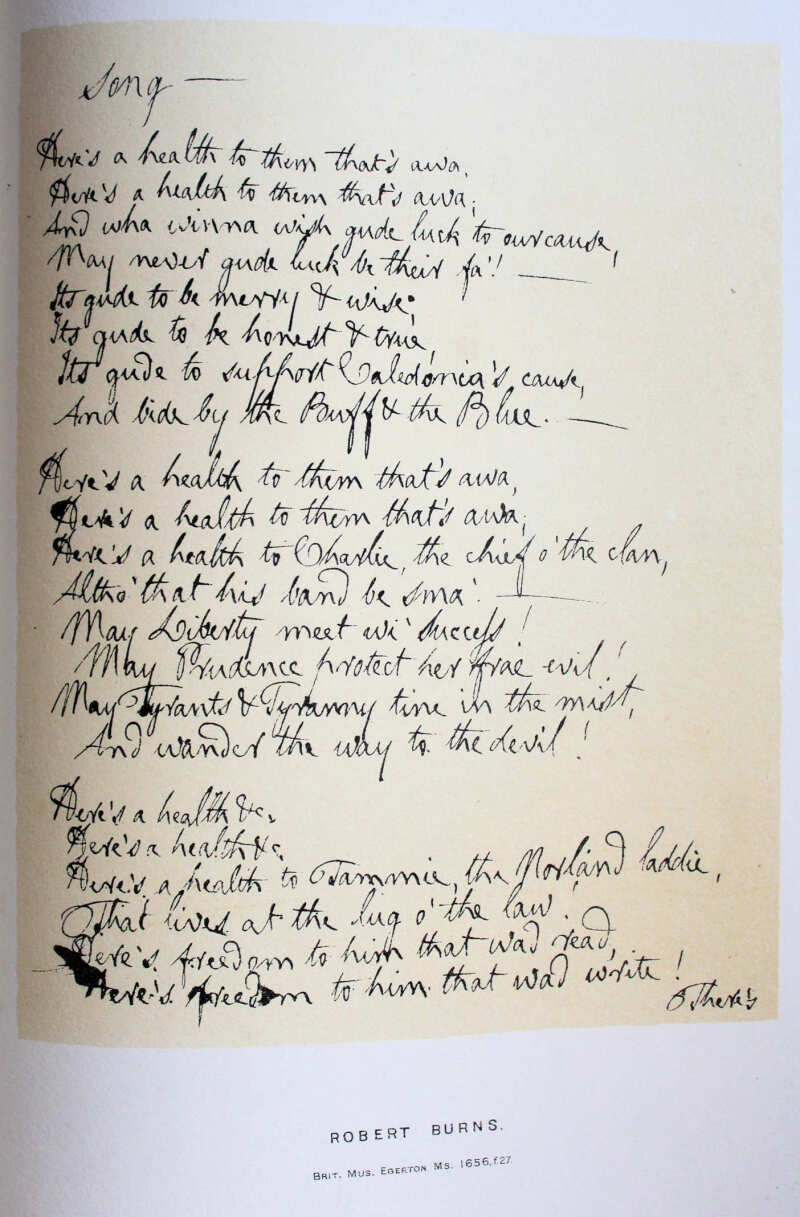 Song —
Here's a health to them that's awa,
Here's a health to them that's awa;
And wha winna wish gude luck to our cause,
May never gude luck be their fa'! —
Its gude to be merry & wise;
Its gude to be honest & true,
Its gude to support Caledonia's cause,
And bide by the Buff & the Blue. —
Here's a health to them that's awa,
Here's a health to them that's awa;
Here's a health to Charlie, the chief o' the clan,
Altho' that his band be sma'. —
May Liberty meet wi' success!
May Prudence protect her frae evil!
May Tyrants & Tyranny tine in the mist,
And wander the way to the devil!
Here's a health &c.
Here's a health &c.
Here's a health to Tammie, the Norland laddie,
That lives at the lug o' the law.
Here's freedom to him that wad read,
Here's freedom to him that wad write!
There's
ROBERT BURNS.
BRIT. MUS. EGERTON MS. 1656, f.27.